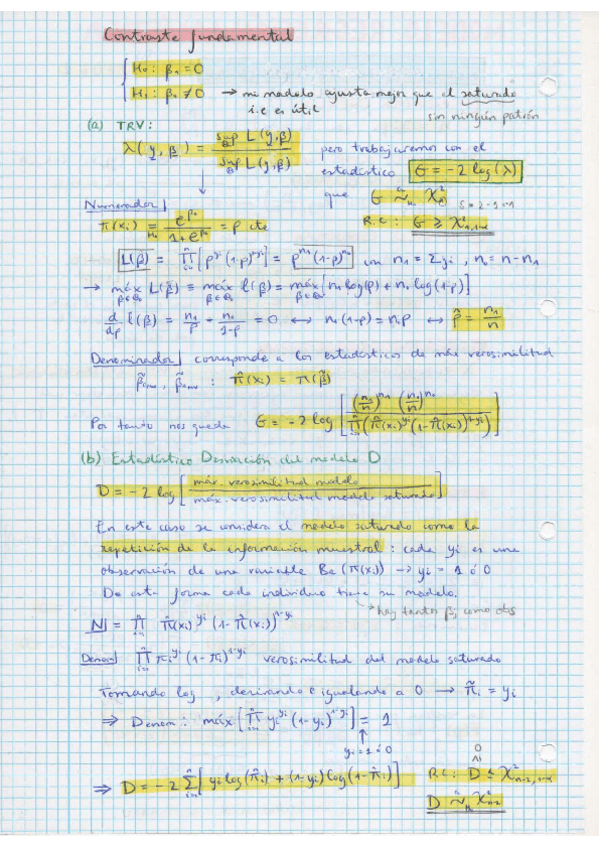 Contraste fundamental
H₀: β₁ = 0
H₁: β₁ ≠ 0 → mi modelo ajusta mejor que el saturado
i.e es útil
sin ningún patrón
(a) TRV:
λ(y, β) = sup L(y,β) / sup L(y,β)
pero trabajaremos con el
estadístico G = -2 log(λ)
que G ~ χ²₁ S = 2-1=1
Numerador
R.C: G ≥ χ²₁,₁₋α
π(xᵢ) = e^β₀ / 1+e^β₀ = p cte
L(β) = ∏[p^yᵢ (1-p)^1-yᵢ] = p^n₁ (1-p)^n₀ con n₁ = Σyᵢ , n₀ = n-n₁
→ máx L(β) ≡ máx ℓ(β) = máx [n₁ log(p) + n₀ log(1-p)]
d/dp ℓ(β) = n₁/p - n₀/1-p = 0 ↔ n₁(1-p) = n₀p ↔ p̂ = n₁/n
Denominador corresponde a los estadísticos de máx verosimilitud
π̂(xᵢ) = π(β̂)
Por tanto nos queda G = -2 log [ (n₁/n)^n₁ (n₀/n)^n₀ / ∏(π̂(xᵢ)^yᵢ (1-π̂(xᵢ))^1-yᵢ) ]
(b) Estadístico Desviación del modelo D
D = -2 log [ máx. verosimilitud modelo / máx. verosimilitud modelo saturado ]
En este caso se considera el modelo saturado como la
repetición de la información muestral: cada yᵢ es una
observación de una variable Be(π(xᵢ)) → yᵢ = 1 ó 0
De esta forma cada individuo tiene su modelo.
→ hay tantos βⱼ como obs
N = ∏ π̂(xᵢ)^yᵢ (1-π̂(xᵢ))^1-yᵢ
Denom ∏ πᵢ^yᵢ (1-πᵢ)^1-yᵢ verosimilitud del modelo saturado
Tomando log, derivando e igualando a 0 → π̃ᵢ = yᵢ
⇒ Denom: máx [∏ yᵢ^yᵢ (1-yᵢ)^1-yᵢ] = 1
yᵢ = 1 ó 0
⇒ D = -2 Σ [yᵢ log(π̂ᵢ) + (1-yᵢ) log(1-π̂ᵢ)]
R.C: D ≤ χ²ₙ₋₂,₁₋α
D ~ χ²ₙ₋₂